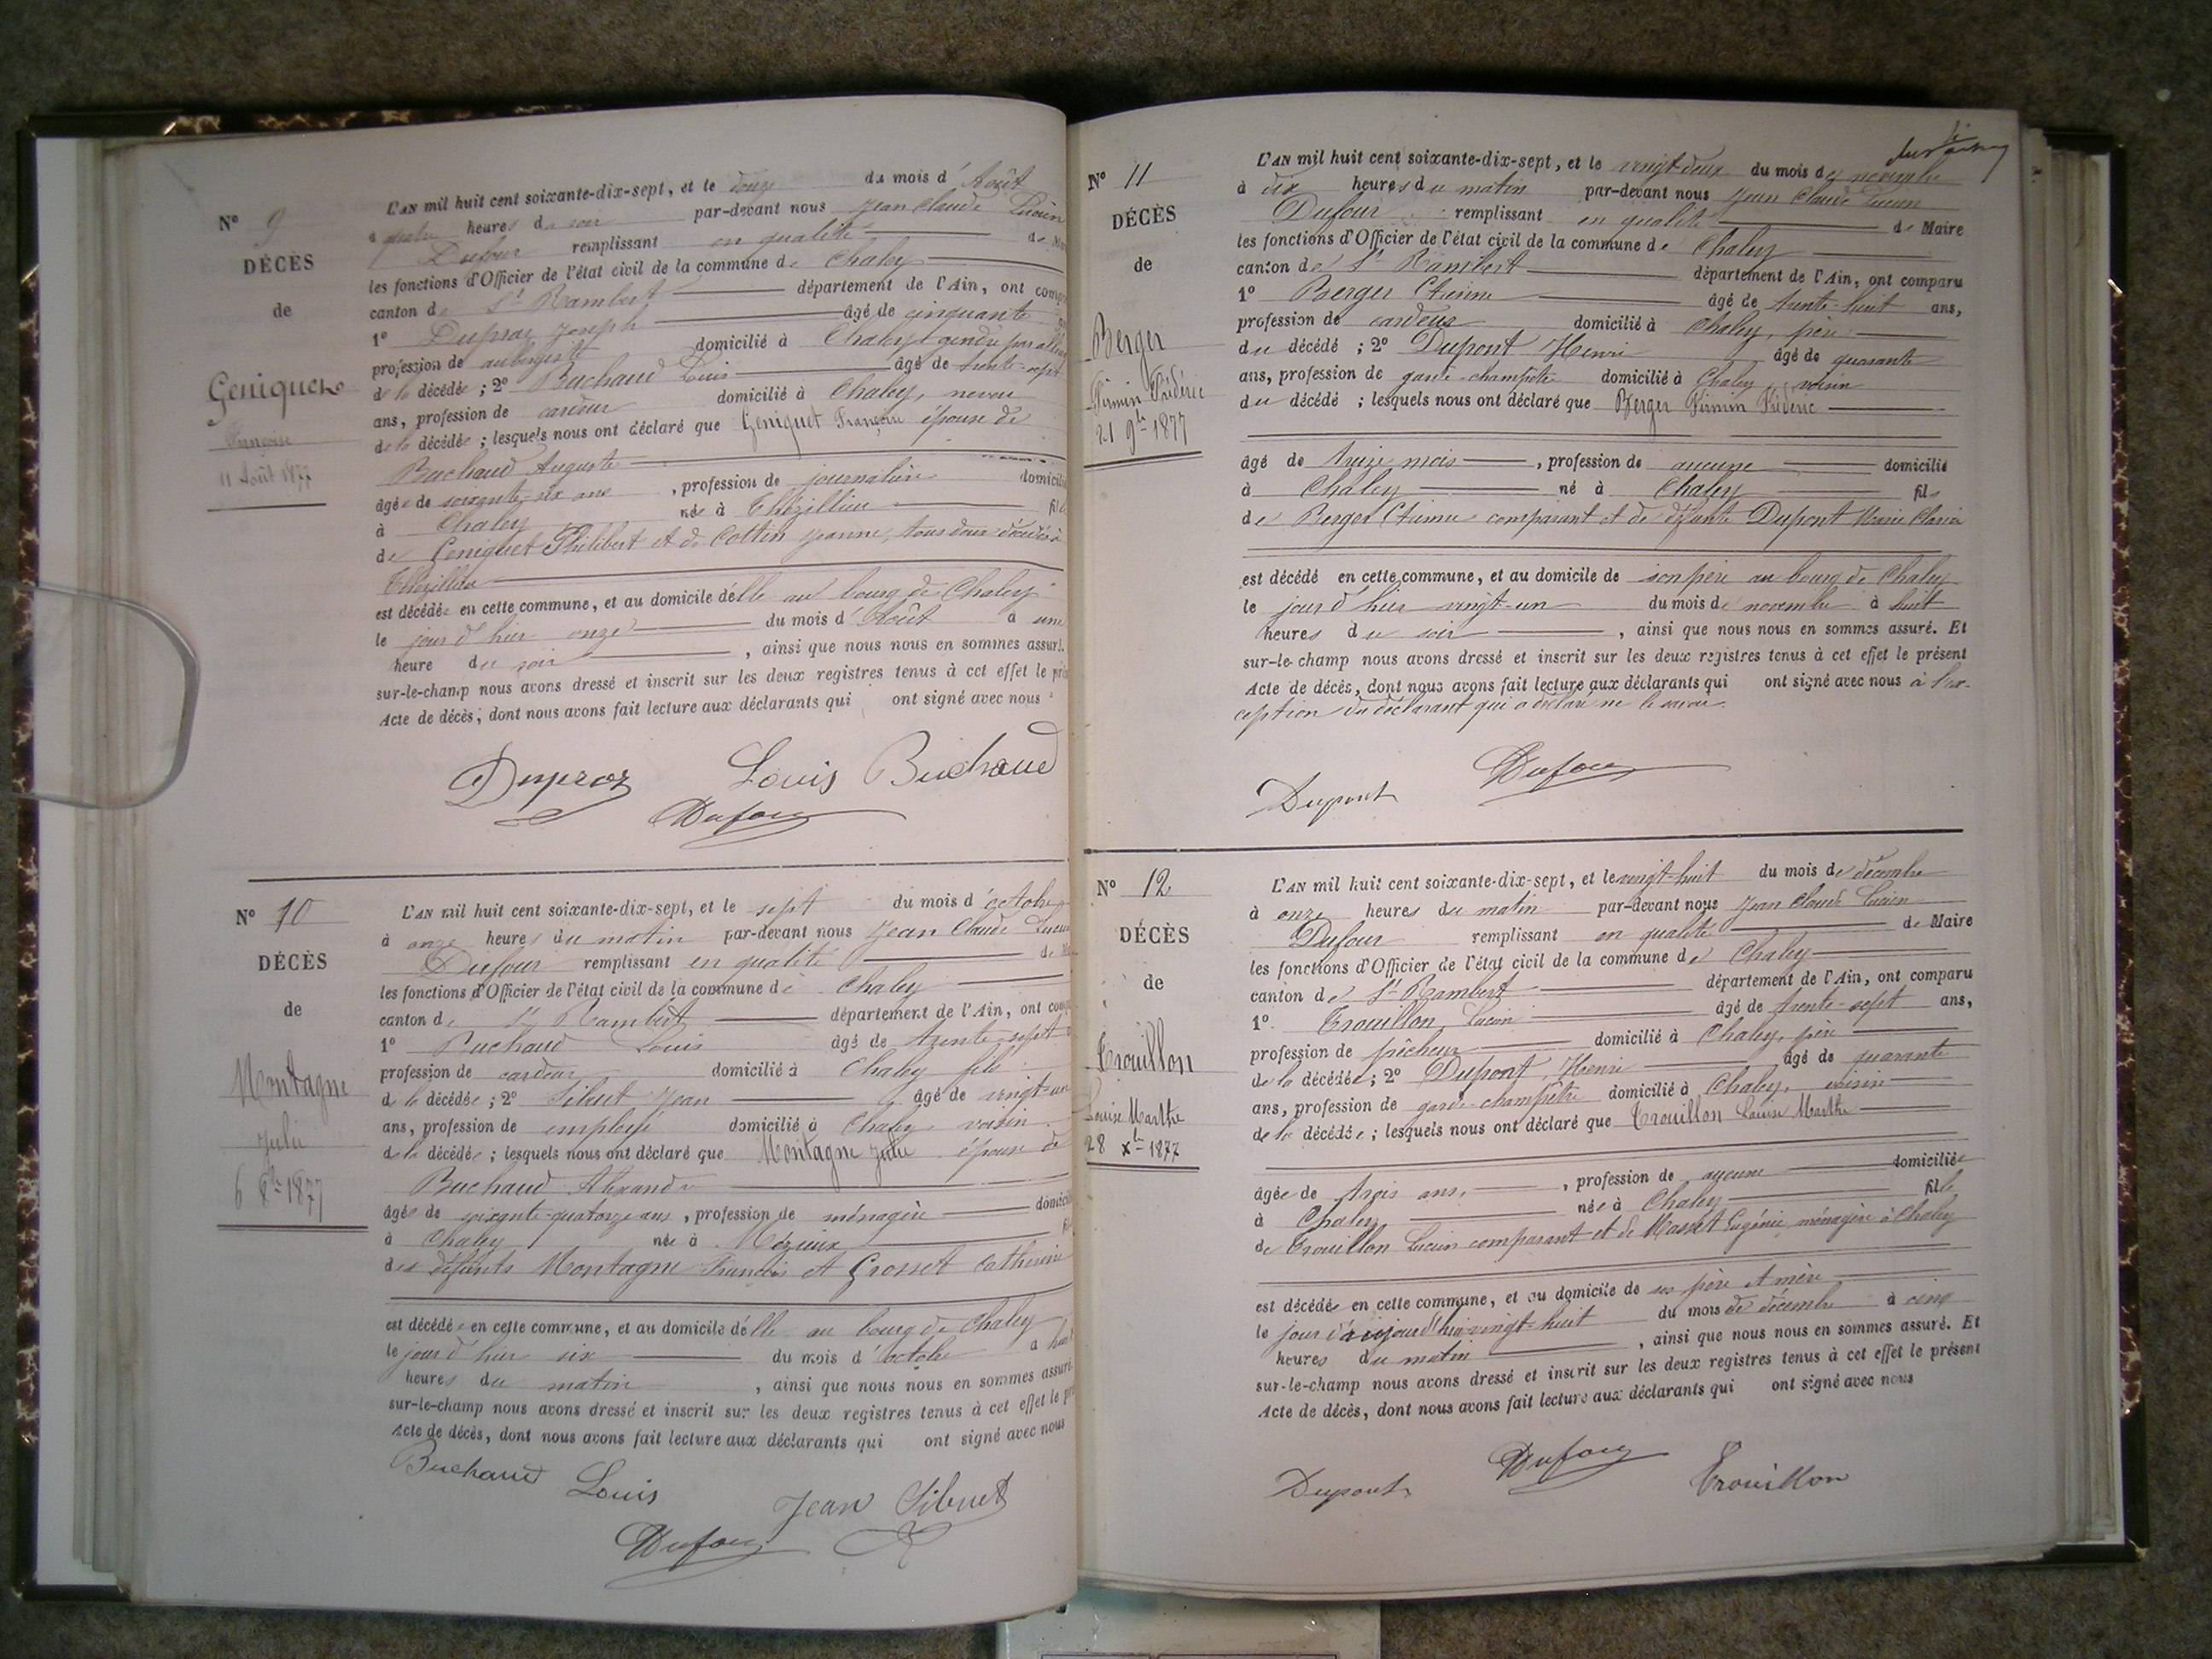 N° 9
DÉCÈS
de
Geniquet
Françoise
11 Août 1877
L'AN mil huit cent soixante-dix-sept, et le douze du mois d'Août
à quatre heures du soir par-devant nous Jean Claude Lucien
Dufour remplissant en qualité de
les fonctions d'Officier de l'état civil de la commune de Chaley
canton de St Rambert département de l'Ain, ont
1° Duproz Joseph âgé de cinquante
profession de aubergiste domicilié à Chaley, gendre par
de la décédée ; 2° Buchaud Louis âgé de trente-sept
ans, profession de cardeur domicilié à Chaley, neveu
de la décédée ; lesquels nous ont déclaré que Geniquet Françoise épouse de
Buchaud Auguste
âgée de soixante-six ans, profession de journalière
à Chaley née à Thézillieu
de Geniquet Philibert et de Cottin Jeanne, tous deux décédés à
Thézillieu
est décédée en cette commune, et au domicile d'elle au bourg de Chaley
le jour d'hier onze du mois d'Août à une
heure du soir, ainsi que nous nous en sommes assuré.
sur-le-champ nous avons dressé et inscrit sur les deux registres tenus à cet effet le
Acte de décès, dont nous avons fait lecture aux déclarants qui ont signé avec nous
Duproz Louis Buchaud
Dufour
N° 10
DÉCÈS
de
Montagne
Julie
6 8bre 1877
L'AN mil huit cent soixante-dix-sept, et le sept du mois d'octobre
à onze heures du matin par-devant nous Jean Claude Lucien
Dufour remplissant en qualité de
les fonctions d'Officier de l'état civil de la commune de Chaley
canton de St Rambert département de l'Ain, ont
1° Buchaud Louis âgé de trente-sept
profession de cardeur domicilié à Chaley fils
de la décédée ; 2° Sibuet Jean âgé de vingt-un
ans, profession de employé domicilié à Chaley, voisin
de la décédée ; lesquels nous ont déclaré que Montagne Julie épouse de
Buchaud Alexandre
âgée de soixante-quatorze ans, profession de ménagère
à Chaley née à
des défunts Montagne François et Grosset Catherine
est décédée en cette commune, et au domicile d'elle au bourg de Chaley
le jour d'hier six du mois d'octobre à
heures du matin, ainsi que nous nous en sommes assuré
sur-le-champ nous avons dressé et inscrit sur les deux registres tenus à cet effet le
Acte de décès, dont nous avons fait lecture aux déclarants qui ont signé avec nous
Buchaud Louis Jean Sibuet
Dufour
N° 11
DÉCÈS
de
Berger
Firmin Frédéric
21 9bre 1877
L'AN mil huit cent soixante-dix-sept, et le vingt-deux du mois de novembre
à dix heures du matin par-devant nous Jean Claude Lucien
Dufour remplissant en qualité de Maire
les fonctions d'Officier de l'état civil de la commune de Chaley
canton de St Rambert département de l'Ain, ont comparu
1° Berger Etienne âgé de trente-huit ans,
profession de cardeur domicilié à Chaley, père
du décédé ; 2° Dupont Henri âgé de quarante
ans, profession de garde-champêtre domicilié à Chaley, voisin
du décédé ; lesquels nous ont déclaré que Berger Firmin Frédéric
âgé de treize mois, profession de aucune domicilié
à Chaley né à Chaley fils
de Berger Etienne comparant et de défunte Dupont Marie
est décédé en cette commune, et au domicile de son père au bourg de Chaley
le jour d'hier vingt-un du mois de novembre à huit
heures du soir, ainsi que nous nous en sommes assuré. Et
sur-le-champ nous avons dressé et inscrit sur les deux registres tenus à cet effet le présent
Acte de décès, dont nous avons fait lecture aux déclarants qui ont signé avec nous à l'ex-
ception du déclarant qui a déclaré ne le savoir.
Dufour
Dupont
N° 12
DÉCÈS
de
Trouillon
Louise Marthe
28 Xbre 1877
L'AN mil huit cent soixante-dix-sept, et le vingt-huit du mois de décembre
à onze heures du matin par-devant nous Jean Claude Lucien
Dufour remplissant en qualité de Maire
les fonctions d'Officier de l'état civil de la commune de Chaley
canton de St Rambert département de l'Ain, ont comparu
1° Trouillon Lucien âgé de trente-sept ans,
profession de pêcheur domicilié à Chaley, père
de la décédée ; 2° Dupont Henri âgé de quarante
ans, profession de garde-champêtre domicilié à Chaley, voisin
de la décédée ; lesquels nous ont déclaré que Trouillon Louise Marthe
âgée de trois ans, profession de aucune domiciliée
à Chaley née à Chaley fille
de Trouillon Lucien comparant et de Masset Eugénie, ménagère à Chaley
est décédée en cette commune, et au domicile de ses père et mère
le jour d'aujourd'hui vingt-huit du mois de décembre à cinq
heures du matin, ainsi que nous nous en sommes assuré. Et
sur-le-champ nous avons dressé et inscrit sur les deux registres tenus à cet effet le présent
Acte de décès, dont nous avons fait lecture aux déclarants qui ont signé avec nous
Dupont Dufour Trouillon